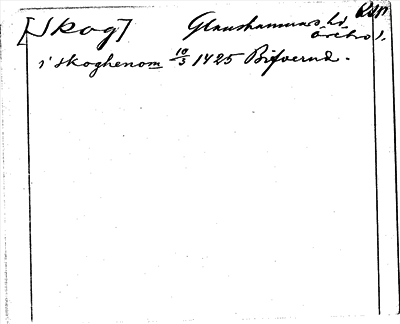 [Skog] Glanshammars hd Rsp
Örebro l.
i skoghenom 10/3 1425 Bifverud.